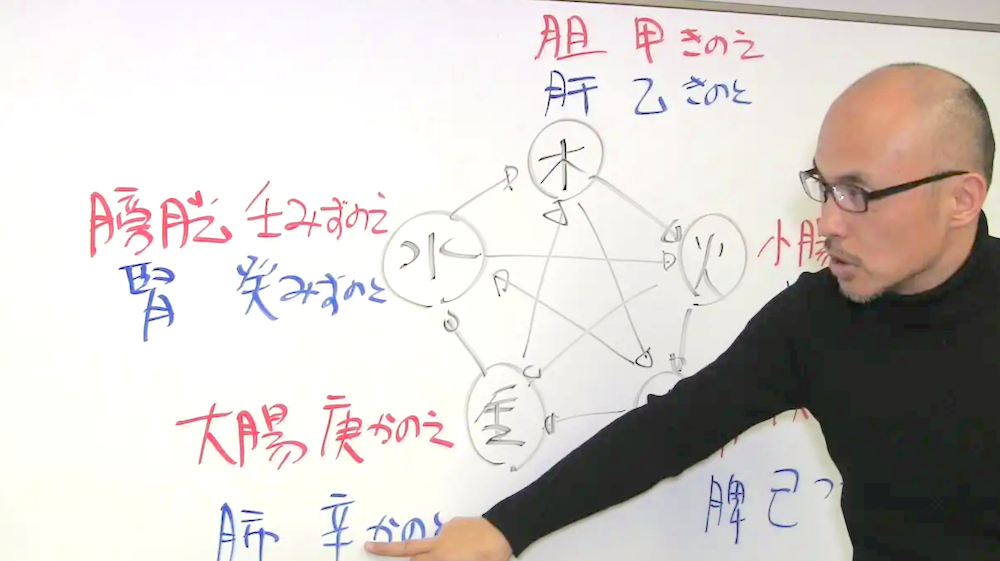 胆 甲きのえ
肝 乙きのと
木
膀胱 壬みずのえ
腎 癸みずのと
水
火
小腸
金
大腸 庚かのえ
肺 辛かのと
脾 己つ